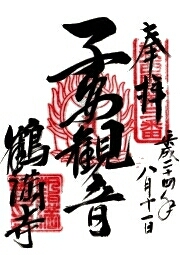 奉拝
平成二十四年
八月十一日
子安観音
鶴満寺